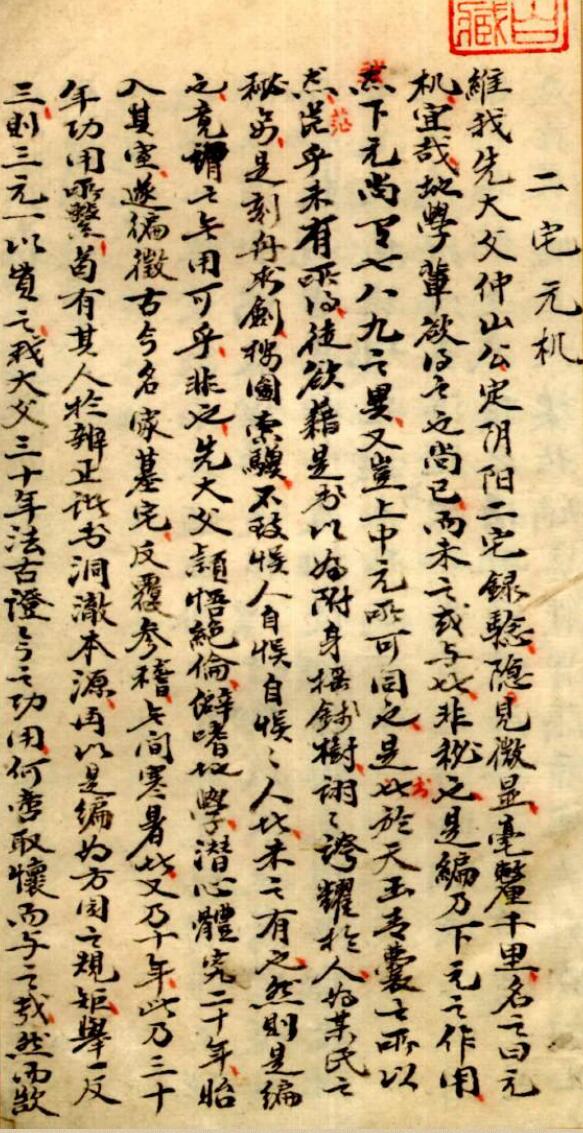 二宅元机
維我先大父仲山公定阴阳二宅録驗隐見微显毫釐千里名之曰元
机宜哉地學輩欲得之也尚已而未之或与此非秘之是編乃下元之作用
然下元尚有七八九之異又豈上中元所可同之是书於天玉青囊之所以
然茫乎未有所得徒欲藉是书以为附身摇錢樹诩〻誇耀於人为某氏之
秘妙是刻舟求劍按圖索驥不致悮人自悮自悮〻人者未之有也然則是編
之竟謂之無用可乎非也先大父颖悟絕倫僻嗜地學潛心體究二十年始
入其室遂徧徵古今名家墓宅反覆参稽無间寒暑者又乃十年此乃三十
年功用所繫苟有其人於辨正諸书洞澈本源再以是編为方圆之規矩舉一反
三則三元一以貫之我大父三十年法古證今之功用何啻取懷而与之哉然而欲